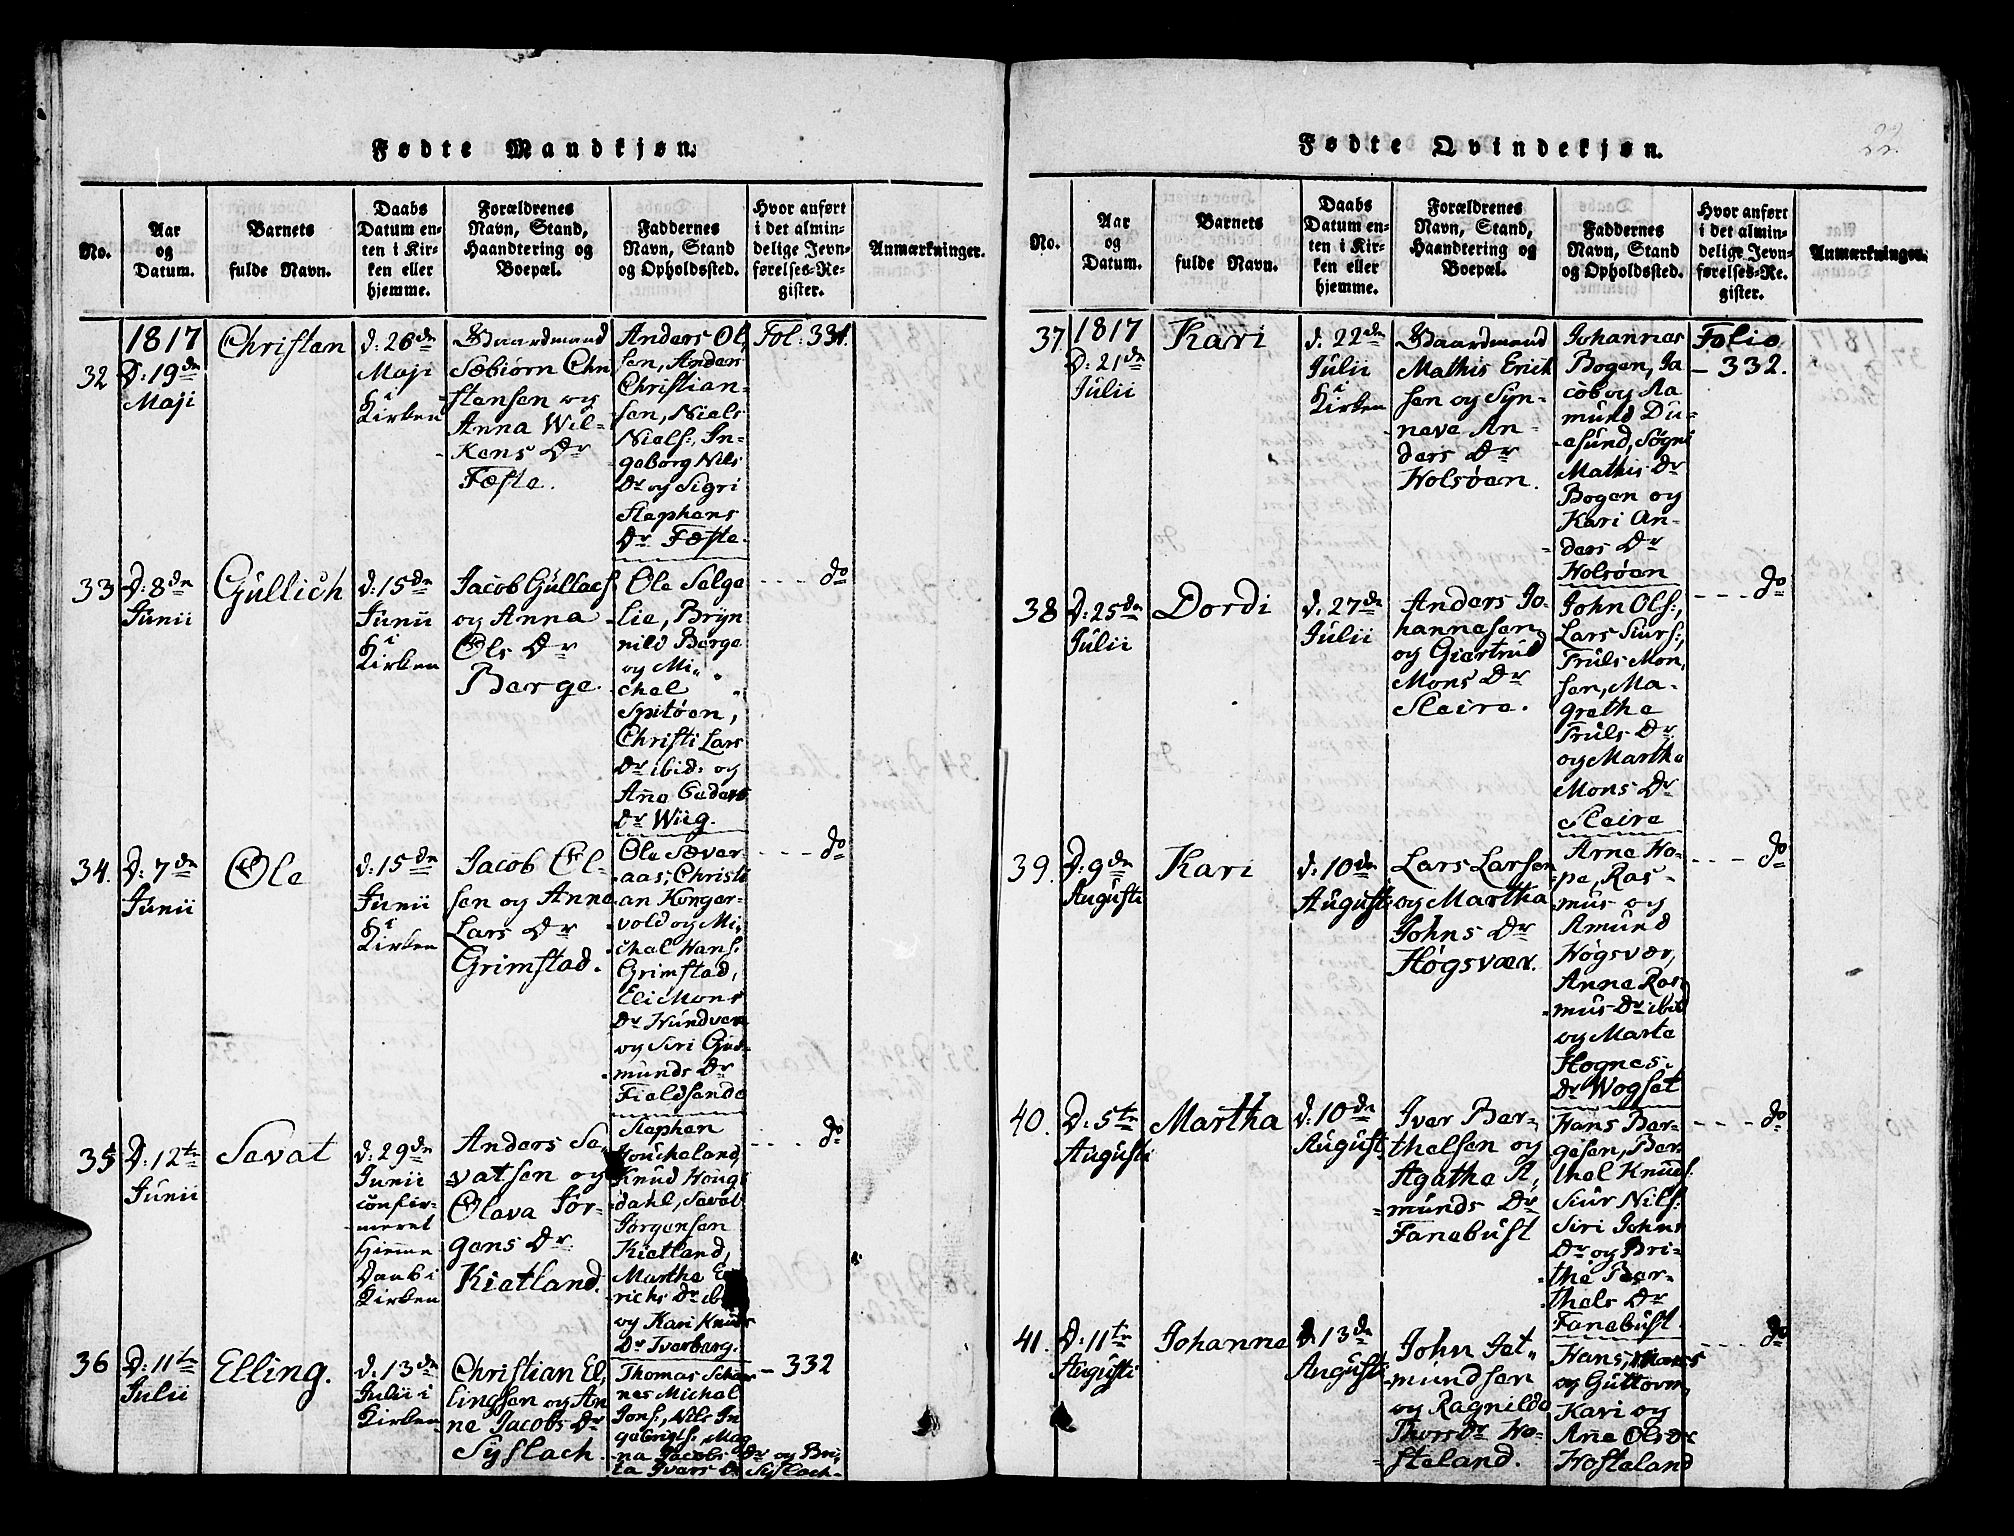 Fødte Mandkjøn.
No.
Aar
og
Datum.
Barnets
fulde Navn.
Daabs
Datum en-
ten i Kir-
ken eller
hjemme.
Forældrenes
Navn, Stand,
Haandtering og
Boepæl.
Faddernes
Navn, Stand
og Opholdssted.
Hvor anført
i det almin-
delige Jevn-
førelses-Re-
gister.
Anmærkninger.
32
1817
D: 19de
Maji
Christen
d: 26de
Maji
i
Kirken
Gaardmand
Sæbiørn Chri
stensen og
Anna Wil-
kens Dr
Fæste.
Anders Ol
sen, Anders
Christian-
sen, Niels
Niels:, In-
geborg Nils
Dr og Sigri
Stephens
Dr Fæste.
Fol: 331.
33
D: 8de
Junii
Gullich
d: 15de
Junii
i
Kirken
Jacob Gullach
og Anna
Ols Dr
Berge
Ole Sælge
lie, Bryn
nild Berge
og Mi-
chel
Spitøen,
Christi Lars
Dr ibid: og
Ane Peders
Dr Wiig.
do
34.
D: 7de
Junii
Ole
d: 15de
Junii
i
Kirken
Jacob Ol-
sen og Anne
Lars Dr
Grimstad.
Ole Sæver
aas, Christi
an Konger-
vold og Mi-
chel Hans:
Grimstad,
Eli Mons
Dr Hundven
og Siri Gud-
munds Dr
Fieldsende
do
35
D: 12te
Junii
Sevat
d: 29de
Junii
confir-
meret
Hiemme
Daab i
Kirken
Anders Se-
vatsen og
Olava Jør-
gens Dr
Kietland.
Stephen
Joucheland,
Knud Hougs
dahl, Sevat
Jørgensen
Kietland,
Marthe E
richs Dr ib
og Kari Knuds
Dr Tverberg.
do
36
D: 11te
Julii
Elling.
d: 13de
Julii i
Kirken
Christian El,
lingsen og An
ne Jacobs Dr
Syslach.
Thomas Schar
nes Michel
Jons:, Nils In
gebrigts: Mag
na Jacobs Dr og Bri,
ta Ivars Dr Syslach-
- 332
Fødte Qvindekjøn.
22.
No.
Aar
og
Datum.
Barnets
fulde Navn.
Daabs
Datum en-
ten i Kir-
ken eller
hjemme.
Forældrenes
Navn, Stand,
Haandtering og
Boepæl.
Faddernes
Navn, Stand
og Opholdssted.
Hvor anført
i det almin-
delige Jevn-
førelses-Re-
gister.
Anmærkninger.
37
1817
D: 21de
Julii
Kari
d: 22de
Julii
i
Kirken
Gaardmand
Mathis Erich
sen og Syn-
neve An-
ders Dr
Holsøen.
Johannes
Bogen, Ja
cob og Aa
mund Du-
esund, Søgni
Mathis Dr
Bogen og
Kari An-
ders Dr
Holsøen
Folio
- 332.
38
D: 25de
Julii
Dordi
d: 27de
Julii
Anders Jo-
hannesen
og Giertrud
Mons Dr
Sleire.
John Ols:,
Lars Siurs:,
Truls Mon,
sen, Ma-
grethe
Truls Dr
og Martha
Mons Dr
Sleire
do
39.
D: 9de
Augusti
Kari
d: 10de
Augusti
Lars Larsen
og Martha
Johns Dr
Høgsvær.
Arne Ho-
pe, Ras-
mus og
Amund
Høgsvær,
Anne Ras
mus Dr ibid
og Marte
Hognes
Dr Wogset
do
40.
D: 5te
Augusti
Martha
d: 10de
August
Iver Ber-
thelsen og
Agatha A,
munds Dr
Fanebust
Hans Ber-
gesen, Ber
thel Knuds:
Siur Nils:
Siri Johns
Dr og Bri-
the Ber-
thels Dr
Fanebust.
do
41.
D: 11te
Augusti
Johanne
D: 13de
Augusti
John Jet-
mundsen
og Ragnilde
Thors Dr Ho-
steland.
Hans, Mons
og Guttorm,
Kari og
Ane Ols Dr
Hosteland
do